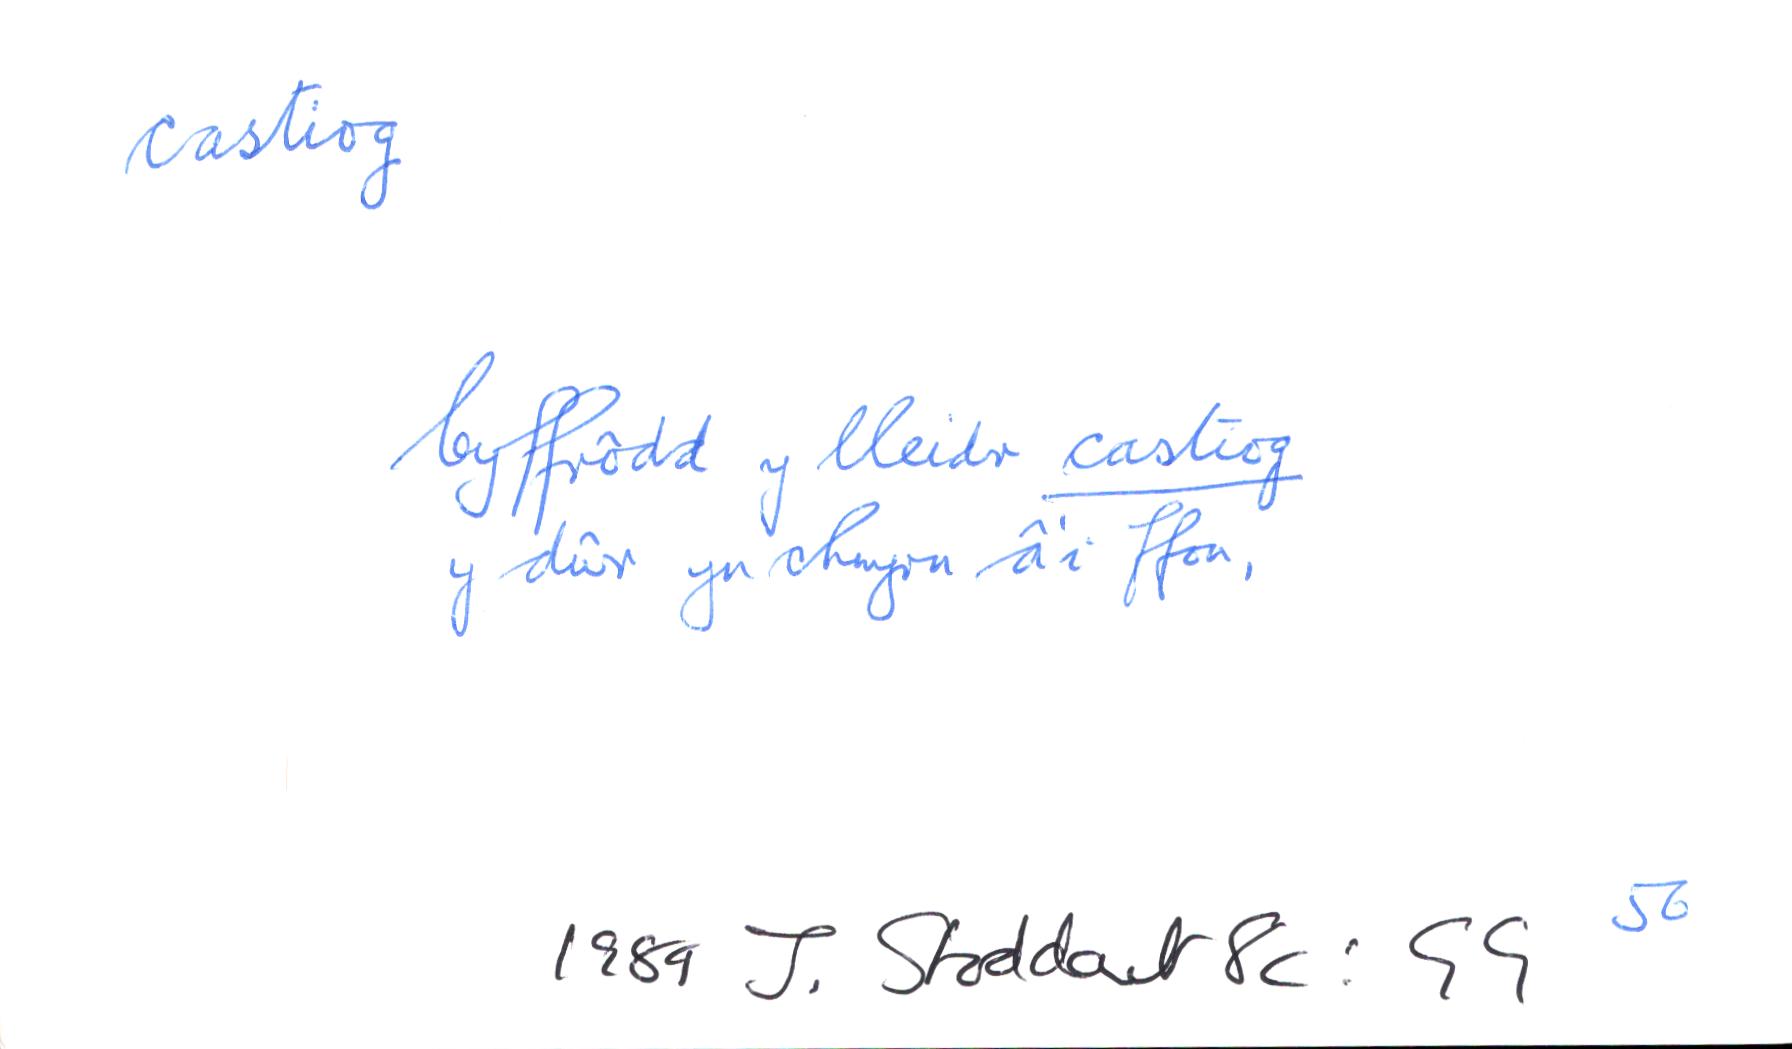 castiog
Cyffrôdd y lleidr castiog
y dŵr yn chwyrn â'i ffon,
1989 J. Stoddart &c: GG 56